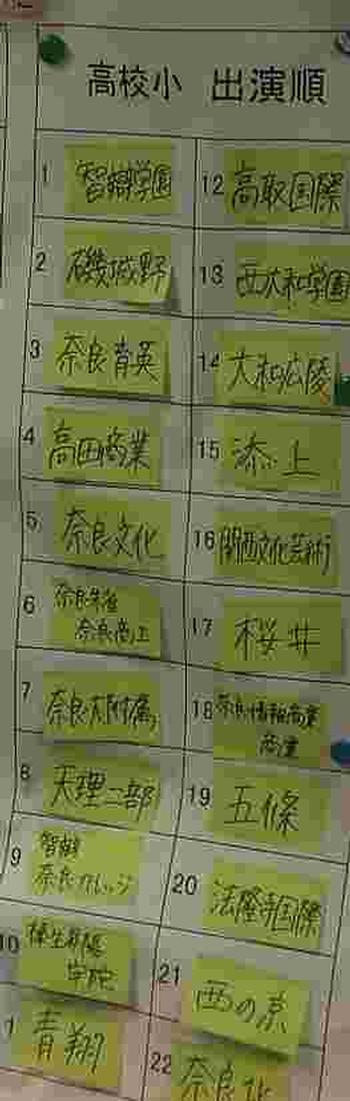 高校小 出演順
1 智辯学園
2 磯城野
3 奈良育英
4 高田商業
5 奈良文化
6 奈良朱雀
奈良商工
7 奈良大附属
8 天理二部
9 智辯
奈良カレッジ
10 榛生昇陽
学院
青翔
12 高取国際
13 西大和学園
14 大和広陵
15 添上
16 関西文化芸術
17 桜井
18 奈良情報商業
商業
19 五條
20 法隆寺国際
21 西の京
22 奈良北